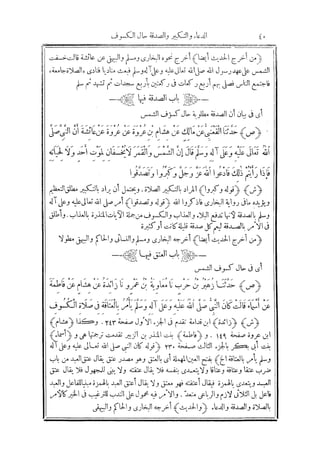 ٤٠ الدعاء والتكبير والصدقة حال الكسوف
﴿من أخرج الحديث أيضا﴾ أخرج نحوه البخارى ومسلم والبيهقى عن عائشة قالت خسفت
الشمس على عهد رسول الله صلى الله تعالى عليه وعلى آله وسلم فبعث مناديا فنادى ، الصلاة جامعة،
فاجتمع الناس فصلى بهم أربع ركعات فى ركعتين وأربع سجدات ثم تشهد ثم سلم
باب الصدقة فيها
أى فى بيان أن الصدقة مطلوبة حال كسوف الشمس
﴿ص﴾ حَدَّثَنَا الْقَعْنَبِيُّ عَنْ مَالِكٍ عَنْ هِشَامِ بْنِ عُرْوَةَ عَنْ عُرْوَةَ عَنْ عَائِشَةَ أَنَّ النَّبِيَّ صَلَّى
اللهُ تَعَالَى عَلَيْهِ وَعَلَى آلِهِ وَسَلَّمَ قَالَ إِنَّ الشَّمْسَ وَالْقَمَرَ لَا يَخْسِفَانِ لِمَوْتِ أَحَدٍ وَلَا لِحَيَاتِهِ
فَإِذَا رَأَيْتُمْ ذٰلِكَ فَادْعُوا اللهَ عَزَّ وَجَلَّ وَكَبِّرُوا وَتَصَدَّقُوا
﴿ش﴾ ﴿قوله وكبروا﴾ المراد بالتكبير الصلاة. ويحتمل أن يراد بالتكبير مطلق التعظيم
ويؤيده مافى رواية البخارى فاذكروا الله ﴿قوله وتصدقوا﴾ أمر صلى الله تعالى عليه وعلى آله
وسلم بالصدقة لأنها تدفع البلاء والعذاب والكسوف من جملة الآيات المنذرة بالعذاب. وأطلق
فى الأمر بالصدقة ليعم كل صدقة قليلة كانت أو كثيرة
﴿من أخرج الحديث أيضا﴾ أخرجه البخارى ومسلم والنسائى والحاكم والبيهقى مطولا
باب العتق فيها
أى فى حال كسوف الشمس
﴿ص﴾ حَدَّثَنَا زُهَيْرُ بْنُ حَرْبٍ نَا مُعَاوِيَةُ بْنُ عَمْرٍو نَا زَائِدَةُ عَنْ هِشَامٍ عَنْ فَاطِمَةَ
عَنْ أَسْمَاءَ قَالَتْ كَانَ النَّبِيُّ صَلَّى اللهُ عَلَيْهِ وَعَلَى آلِهِ وَسَلَّمَ يَأْمُرُ بِالْعَتَاقَةِ فِي صَلَاةِ الْكُسُوفِ
﴿ش﴾ ﴿زائدة﴾ ابن قدامة تقدم فى الجزء الأول صفحة ٢٤٣. وكذا ﴿هشام﴾
ابن عروة صفحة ١٤٩. و ﴿فاطمة﴾ بنت المنذر بن الزبير تقدمت ترجمتها هى و ﴿أسماء﴾
بنت أبى بكر بالجزء الثالث صفحة ٢٣٠ ﴿قوله كان النبى صلى الله تعالى عليه وعلى آله
وسلم يأمر بالعتاقة الخ﴾ بفتح العين المهملة أى بالعتق وهو مصدر عتق يقال عتق العبد من باب
ضرب عتقا وعتاقة وعتاقا ولا يتعدى بنفسه فلا يقال عتقته ولا يبنى للمجهول فلا يقال عتق
العبد ويتعدى بالهمزة فيقال أعتقته فهو معتق ولا يقال أعتق العبد بالهمزة مبنيا للفاعل والعبد
فاعل بل الثلاثى لازم والرباعى متعد. والأمر فيه محمول على الندب للترغيب فى الخير كالأمر
بالصلاة والصدقة والدعاء. ﴿والحديث﴾ أخرجه البخارى والحاكم والبيهقى